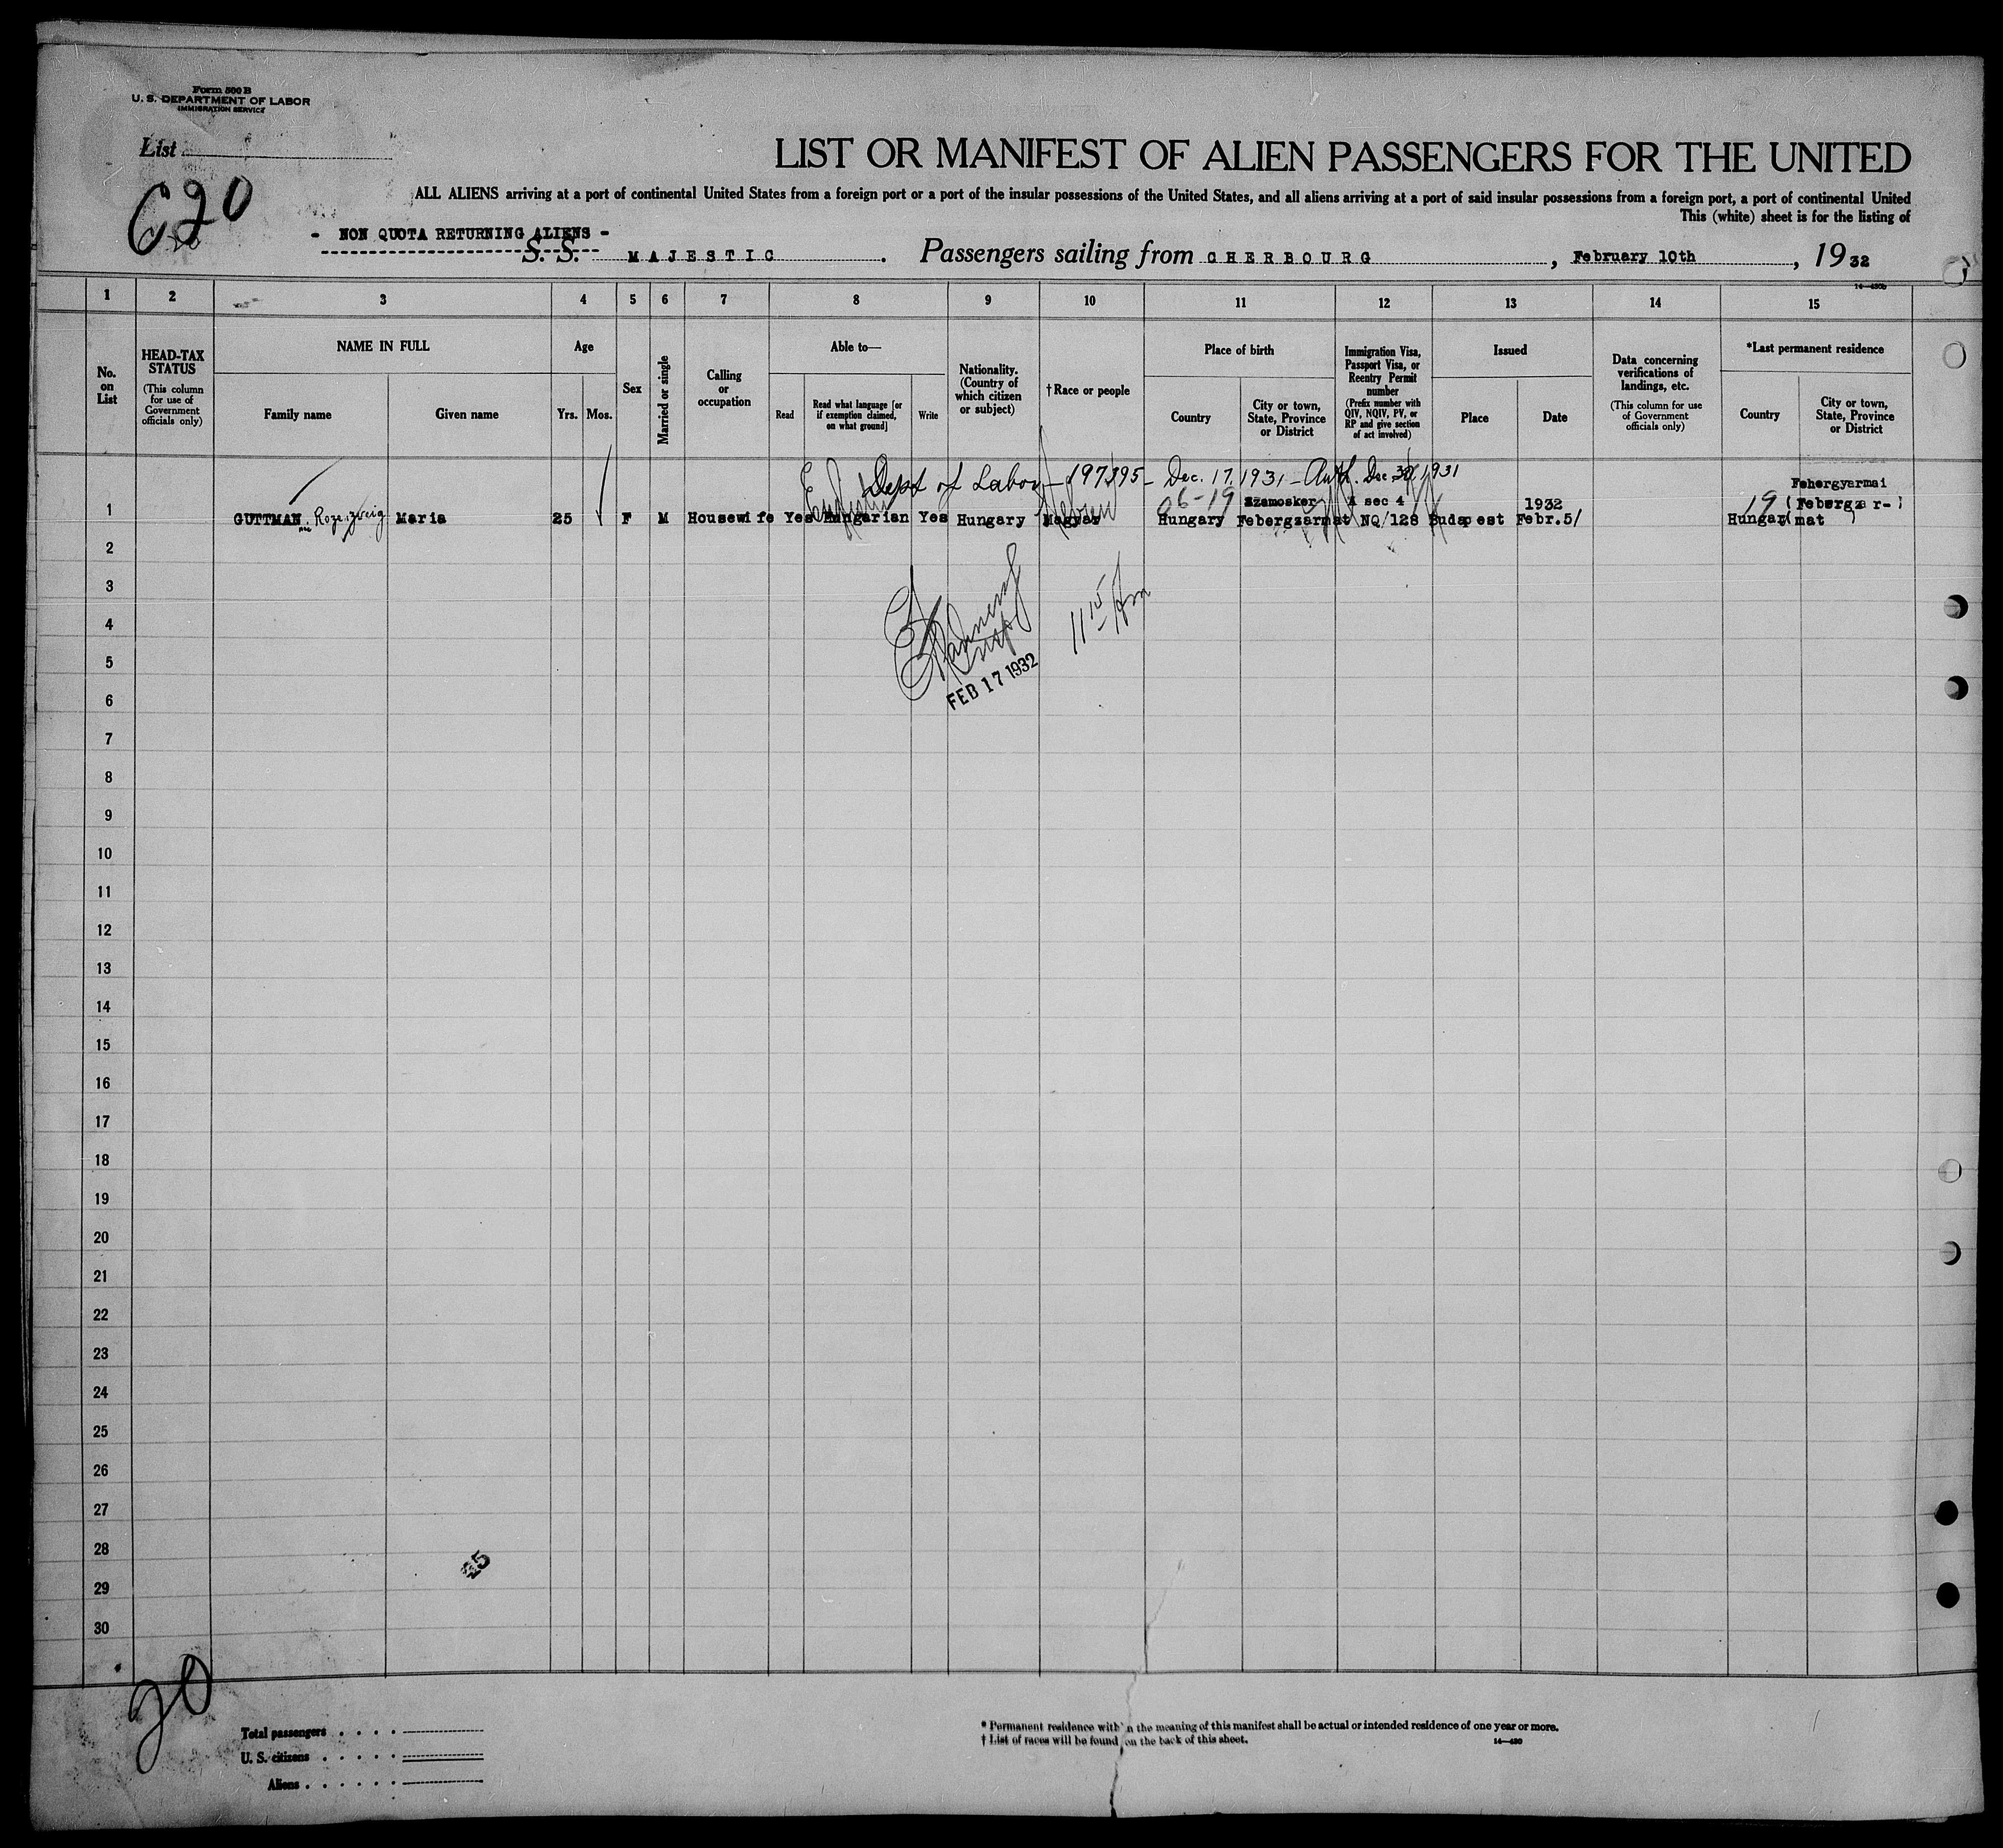 Form 500 B
U. S. DEPARTMENT OF LABOR
IMMIGRATION SERVICE
List
620
LIST OR MANIFEST OF ALIEN PASSENGERS FOR THE UNITED
ALL ALIENS arriving at a port of continental United States from a foreign port or a port of the insular possessions of the United States, and all aliens arriving at a port of said insular possessions from a foreign port, a port of continental United
This (white) sheet is for the listing of
- NON QUOTA RETURNING ALIENS -
S. S. MAJESTIC. Passengers sailing from CHERBOURG, February 10th, 1932
14—430b
1 2 3 4 5 6 7 8 9 10 11 12 13 14 15
No. on List
HEAD-TAX STATUS
(This column for use of Government officials only)
NAME IN FULL
Family name Given name
Age
Yrs. Mos.
Sex
Married or single
Calling or occupation
Able to—
Read
Read what language [or if exemption claimed, on what ground]
Write
Nationality. (Country of which citizen or subject)
†Race or people
Place of birth
Country
City or town, State, Province or District
Immigration Visa, Passport Visa, or Reentry Permit number
(Prefix number with QIV, NQIV, PV, or RP and give section of act involved)
Issued
Place Date
Data concerning verifications of landings, etc.
(This column for use of Government officials only)
*Last permanent residence
Country
City or town, State, Province or District
Dept of Labor - 197395 - Dec. 17, 1931 - Auth. Dec 30, 1931
Fehergyarmai
06-19 Szamosker A sec 4 1932 19 (Febergzar-)
1 GUTTMAN Rozeizweig Maria 25 F M Housewife Yes Hungarian Yes Hungary Magyar Hungary Febergzarmat NQ/128 Budapest Febr.5/ Hungar(mat )
2
3
4
11 15 Am
5
FEB 17 1932
6
7
8
9
10
11
12
13
14
15
16
17
18
19
20
21
22
23
24
25
26
27
28
29
30
20
Total passengers
U. S. citizens
Aliens
* Permanent residence within the meaning of this manifest shall be actual or intended residence of one year or more.
† List of races will be found on the back of this sheet.
14—430